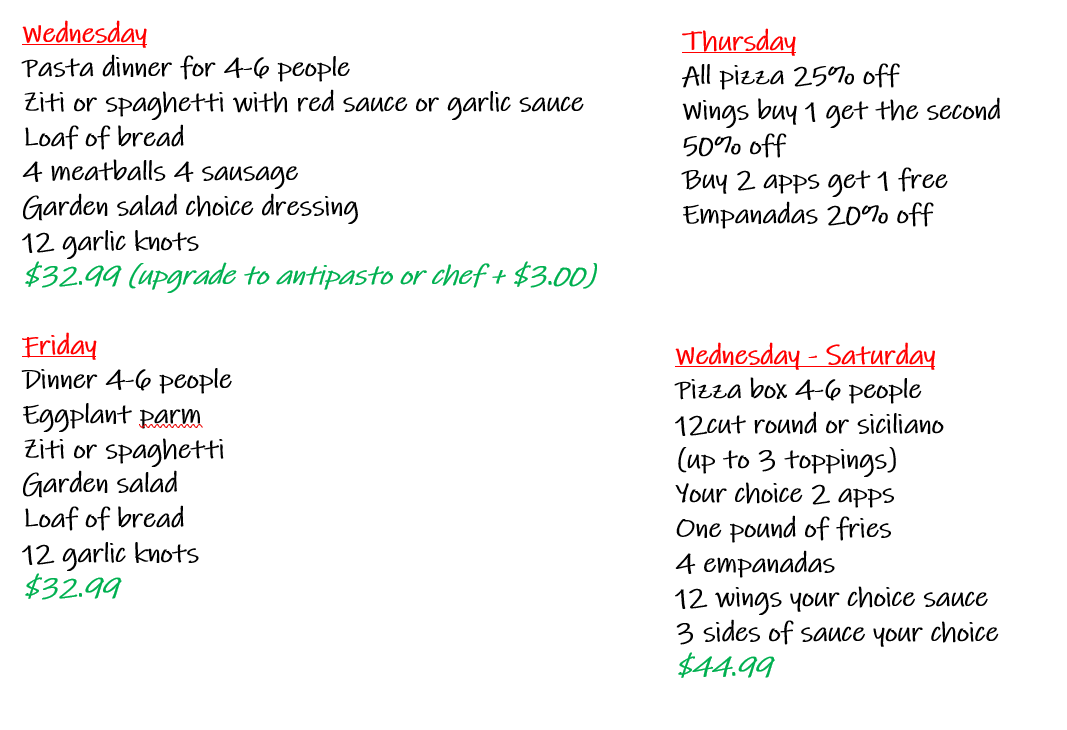 Wednesday
Pasta dinner for 4-6 people
Ziti or spaghetti with red sauce or garlic sauce
Loaf of bread
4 meatballs 4 sausage
Garden salad choice dressing
12 garlic knots
$32.99 (upgrade to antipasto or chef + $3.00)
Thursday
All pizza 25% off
Wings buy 1 get the second
50% off
Buy 2 apps get 1 free
Empanadas 20% off
Friday
Dinner 4-6 people
Eggplant parm
Ziti or spaghetti
Garden salad
Loaf of bread
12 garlic knots
$32.99
Wednesday - Saturday
Pizza box 4-6 people
12cut round or siciliano
(up to 3 toppings)
Your choice 2 apps
One pound of fries
4 empanadas
12 wings your choice sauce
3 sides of sauce your choice
$44.99